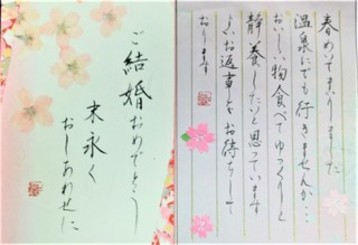 春めいてまいりました
温泉にでも行きませんか…
おいしい物食べてゆっくりと
静養したいと思っています
よいお返事をお待ちして
おります
ご結婚おめでとう
末永く
おしあわせに